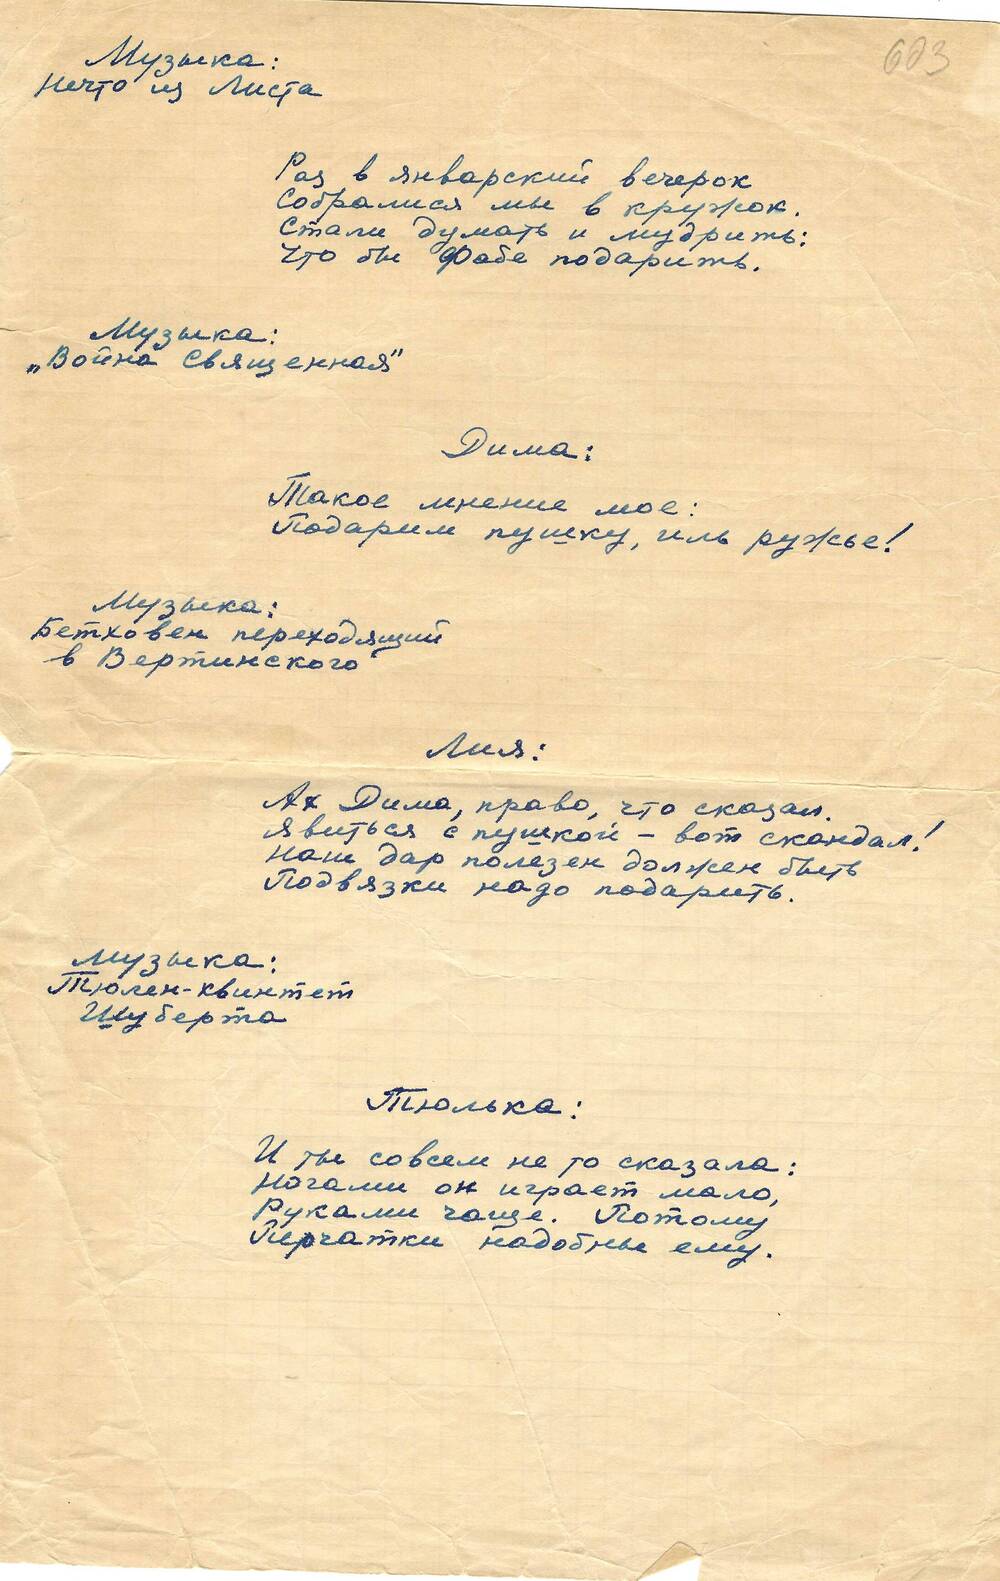 603
Музыка:
Нечто из Листа
Раз в январский вечерок
Собралися мы в кружок.
Стали думать и мудрить:
Что бы Фабе подарить.
Музыка:
„Война Священная"
Дима:
Такое мнение мое:
Подарим пушку, иль ружье!
Музыка:
Бетховен переходящий
в Вертинского
Лия:
Ах Дима, право, что сказал.
Явиться с пушкой – вот скандал!
Наш дар полезен должен быть
Подвязки надо подарить.
Музыка:
Тюлен-квинтет
Шуберта
Тюлька:
И ты совсем не то сказала:
Ногами он играет мало,
Руками чаще. Потому
Перчатки надобны ему.